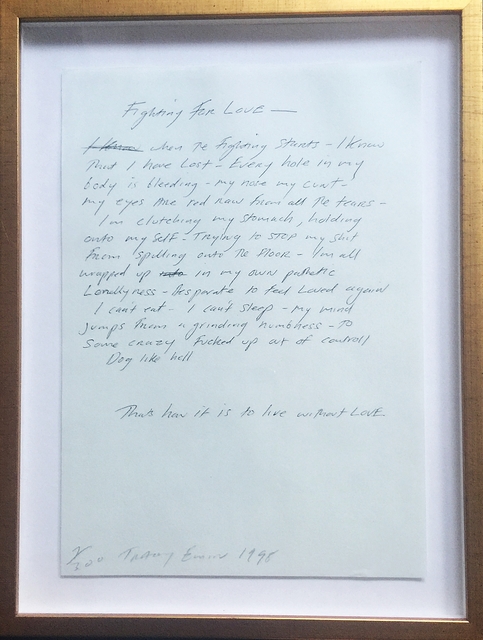 Fighting For Love —
I know when the fighting starts - I know
that I have Lost - Every hole in my
body is bleeding - my nose my cunt -
my eyes are red raw from all the tears -
I'm clutching my stomach, holding
onto my self - Trying to stop my shit
from spilling onto the floor - I'm all
wrapped up in my own pathetic
Lonellyness - Desparate to feel Loved again
I can't eat - I can't sleep - my mind
jumps from a grinding numbness - TO
Some crazy fucked up out of controll
Dog like hell
Thats how it is to live without LOVE.
/200 Tracey Emin 1998